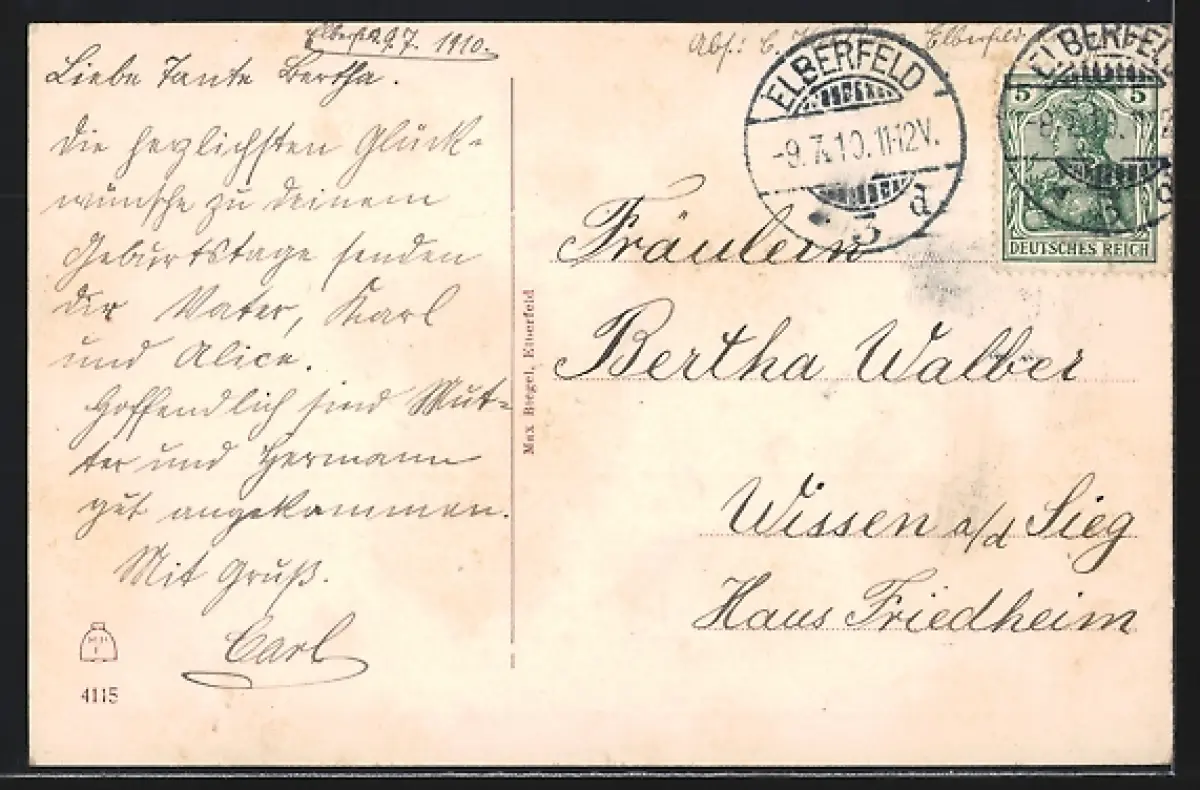 Elberfeld 9.7. 1910.
Liebe Tante Bertha.
Die herzlichsten Glück-
wünsche zu deinem
Geburtstage senden
dir Vater, Karl
und Alice.
Hoffendlich sind Mut-
ter und Hermann
gut angekommen.
Mit Gruß.
Carl
4115
Max Biegel, Elberfeld
Abs: C. Elberfeld
ELBERFELD
-9.7.10.11-12V.
3 d
ELBERFELD
5 5
DEUTSCHES REICH
Fräulein
Bertha Walber
Wissen a/d Sieg
Haus Friedheim